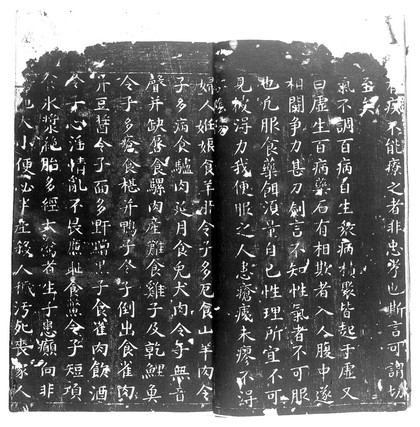 疾不能療之者非忠孝也斯言可謂切
至矣
氣不調百病自生發病積聚皆起于虛又
曰虛生百病藥石有相欺者入人腹中遂
相鬪爭力甚刀劍言不知性氣者不可服
也凡服食藥餌須量自己性理所宜不可
見彼得力我便服之人患瘡未瘳不得
婦人妊娠食羊肝令子多厄食山羊肉令
子多病食驢肉延月食兔犬肉令子無音
聲并缺脣食騾肉產難食雞子及乾鯉魚
令子多瘡食椹并鴨子令子倒出食雀肉
并豆醬令子面多黑子食雀肉飲酒
令子心淫情亂不畏羞恥食鱉令子短項
氷漿絕胎多經大者生子患癲向非
地大小便必半產殺人汚死喪家人